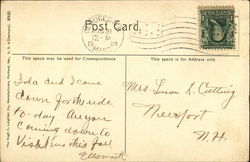 Post Card.
This space may be used for Correspondence
This space is for Address only
Ida and I came
down for the ride
to-day Are you
coming down to
visit us this fall
Mrs. Susan R. Cutting
Newport
N.H.